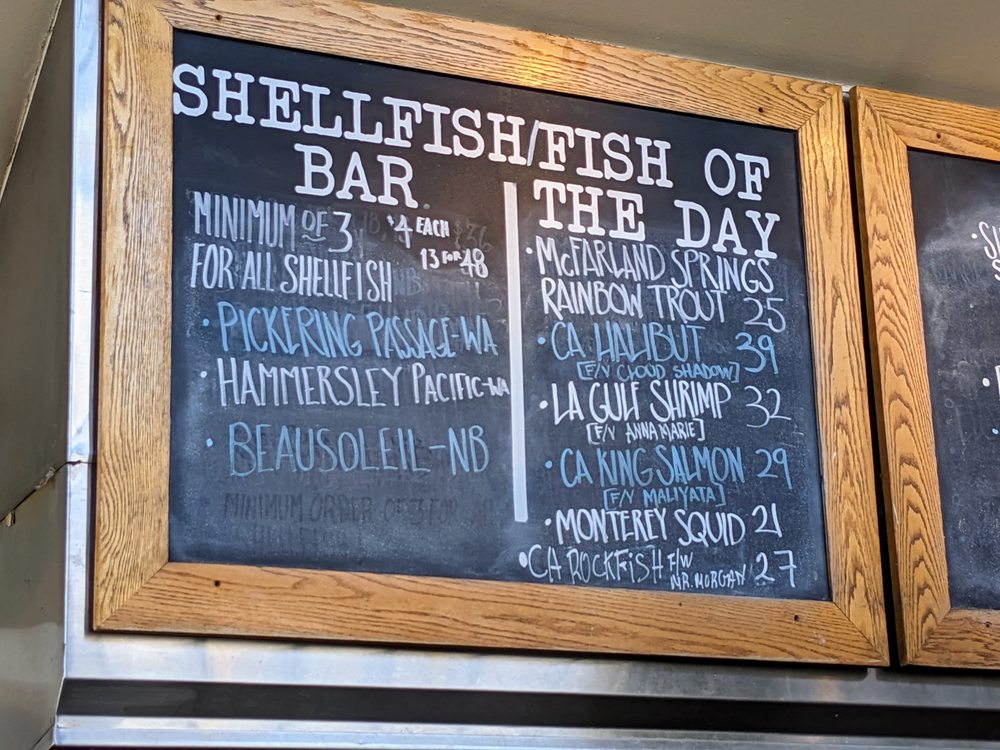 SHELLFISH/FISH OF
BAR
THE DAY
MINIMUM OF 3 $4 EACH
13 FOR 48
FOR ALL SHELLFISH
• PICKERING PASSAGE-WA
• HAMMERSLEY PACIFIC-WA
• BEAUSOLEIL-NB
MINIMUM ORDER OF 3
• McFARLAND SPRINGS
RAINBOW TROUT 25
• CA HALIBUT 39
[F/V CLOUD SHADOW]
• LA GULF SHRIMP 32
[F/V ANNA MARIE]
• CA KING SALMON 29
[F/V MALIYATA]
• MONTEREY SQUID 21
• CA ROCKFISH F/W 27
MR. MORGAN